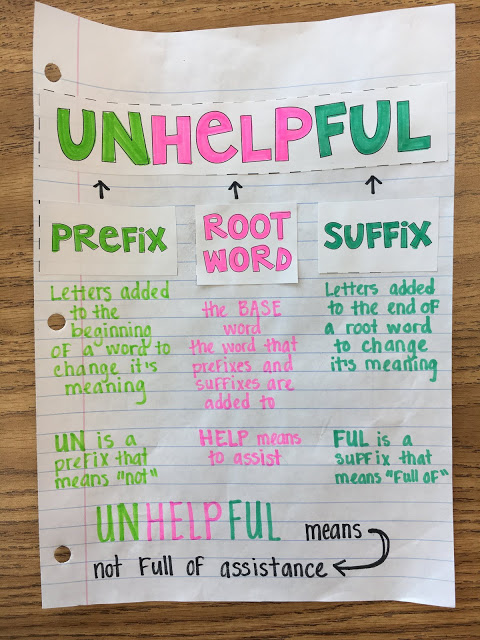 UNHeLPFUL
PReFiX
ROOT
WORD
SUFFiX
Letters added
to the
beginning
OF a word to
change it's
meaning
the BASE
word
the word that
prefixes and
suffixes are
added to
Letters added
to the end OF
a root word
to change
it's meaning
UN is a
prefix that
means "not"
HELP means
to assist
FUL is a
suffix that
means "Full of"
UNHELPFUL means
not Full of assistance